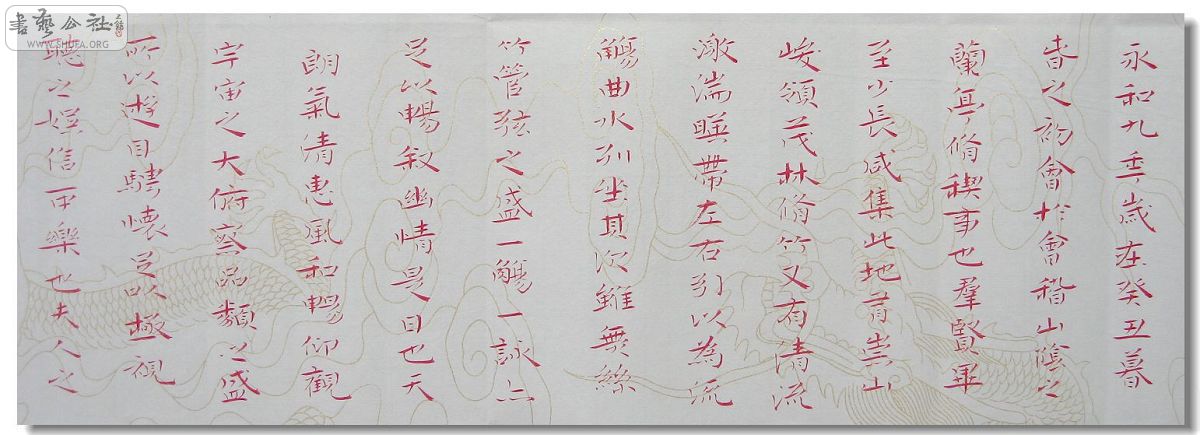 永和九年歲在癸丑暮
春之初會於會稽山陰之
蘭亭脩稧事也羣賢畢
至少長咸集此地有崇山
峻領茂林脩竹又有清流
激湍暎帶左右引以為流
觴曲水列坐其次雖無絲
竹管弦之盛一觴一詠亦
足以暢叙幽情是日也天
朗氣清惠風和暢仰觀
宇宙之大俯察品類之盛
所以遊目騁懷足以極視
聽之娛信可樂也夫人之
書藝公社
WWW.SHUFA.ORG